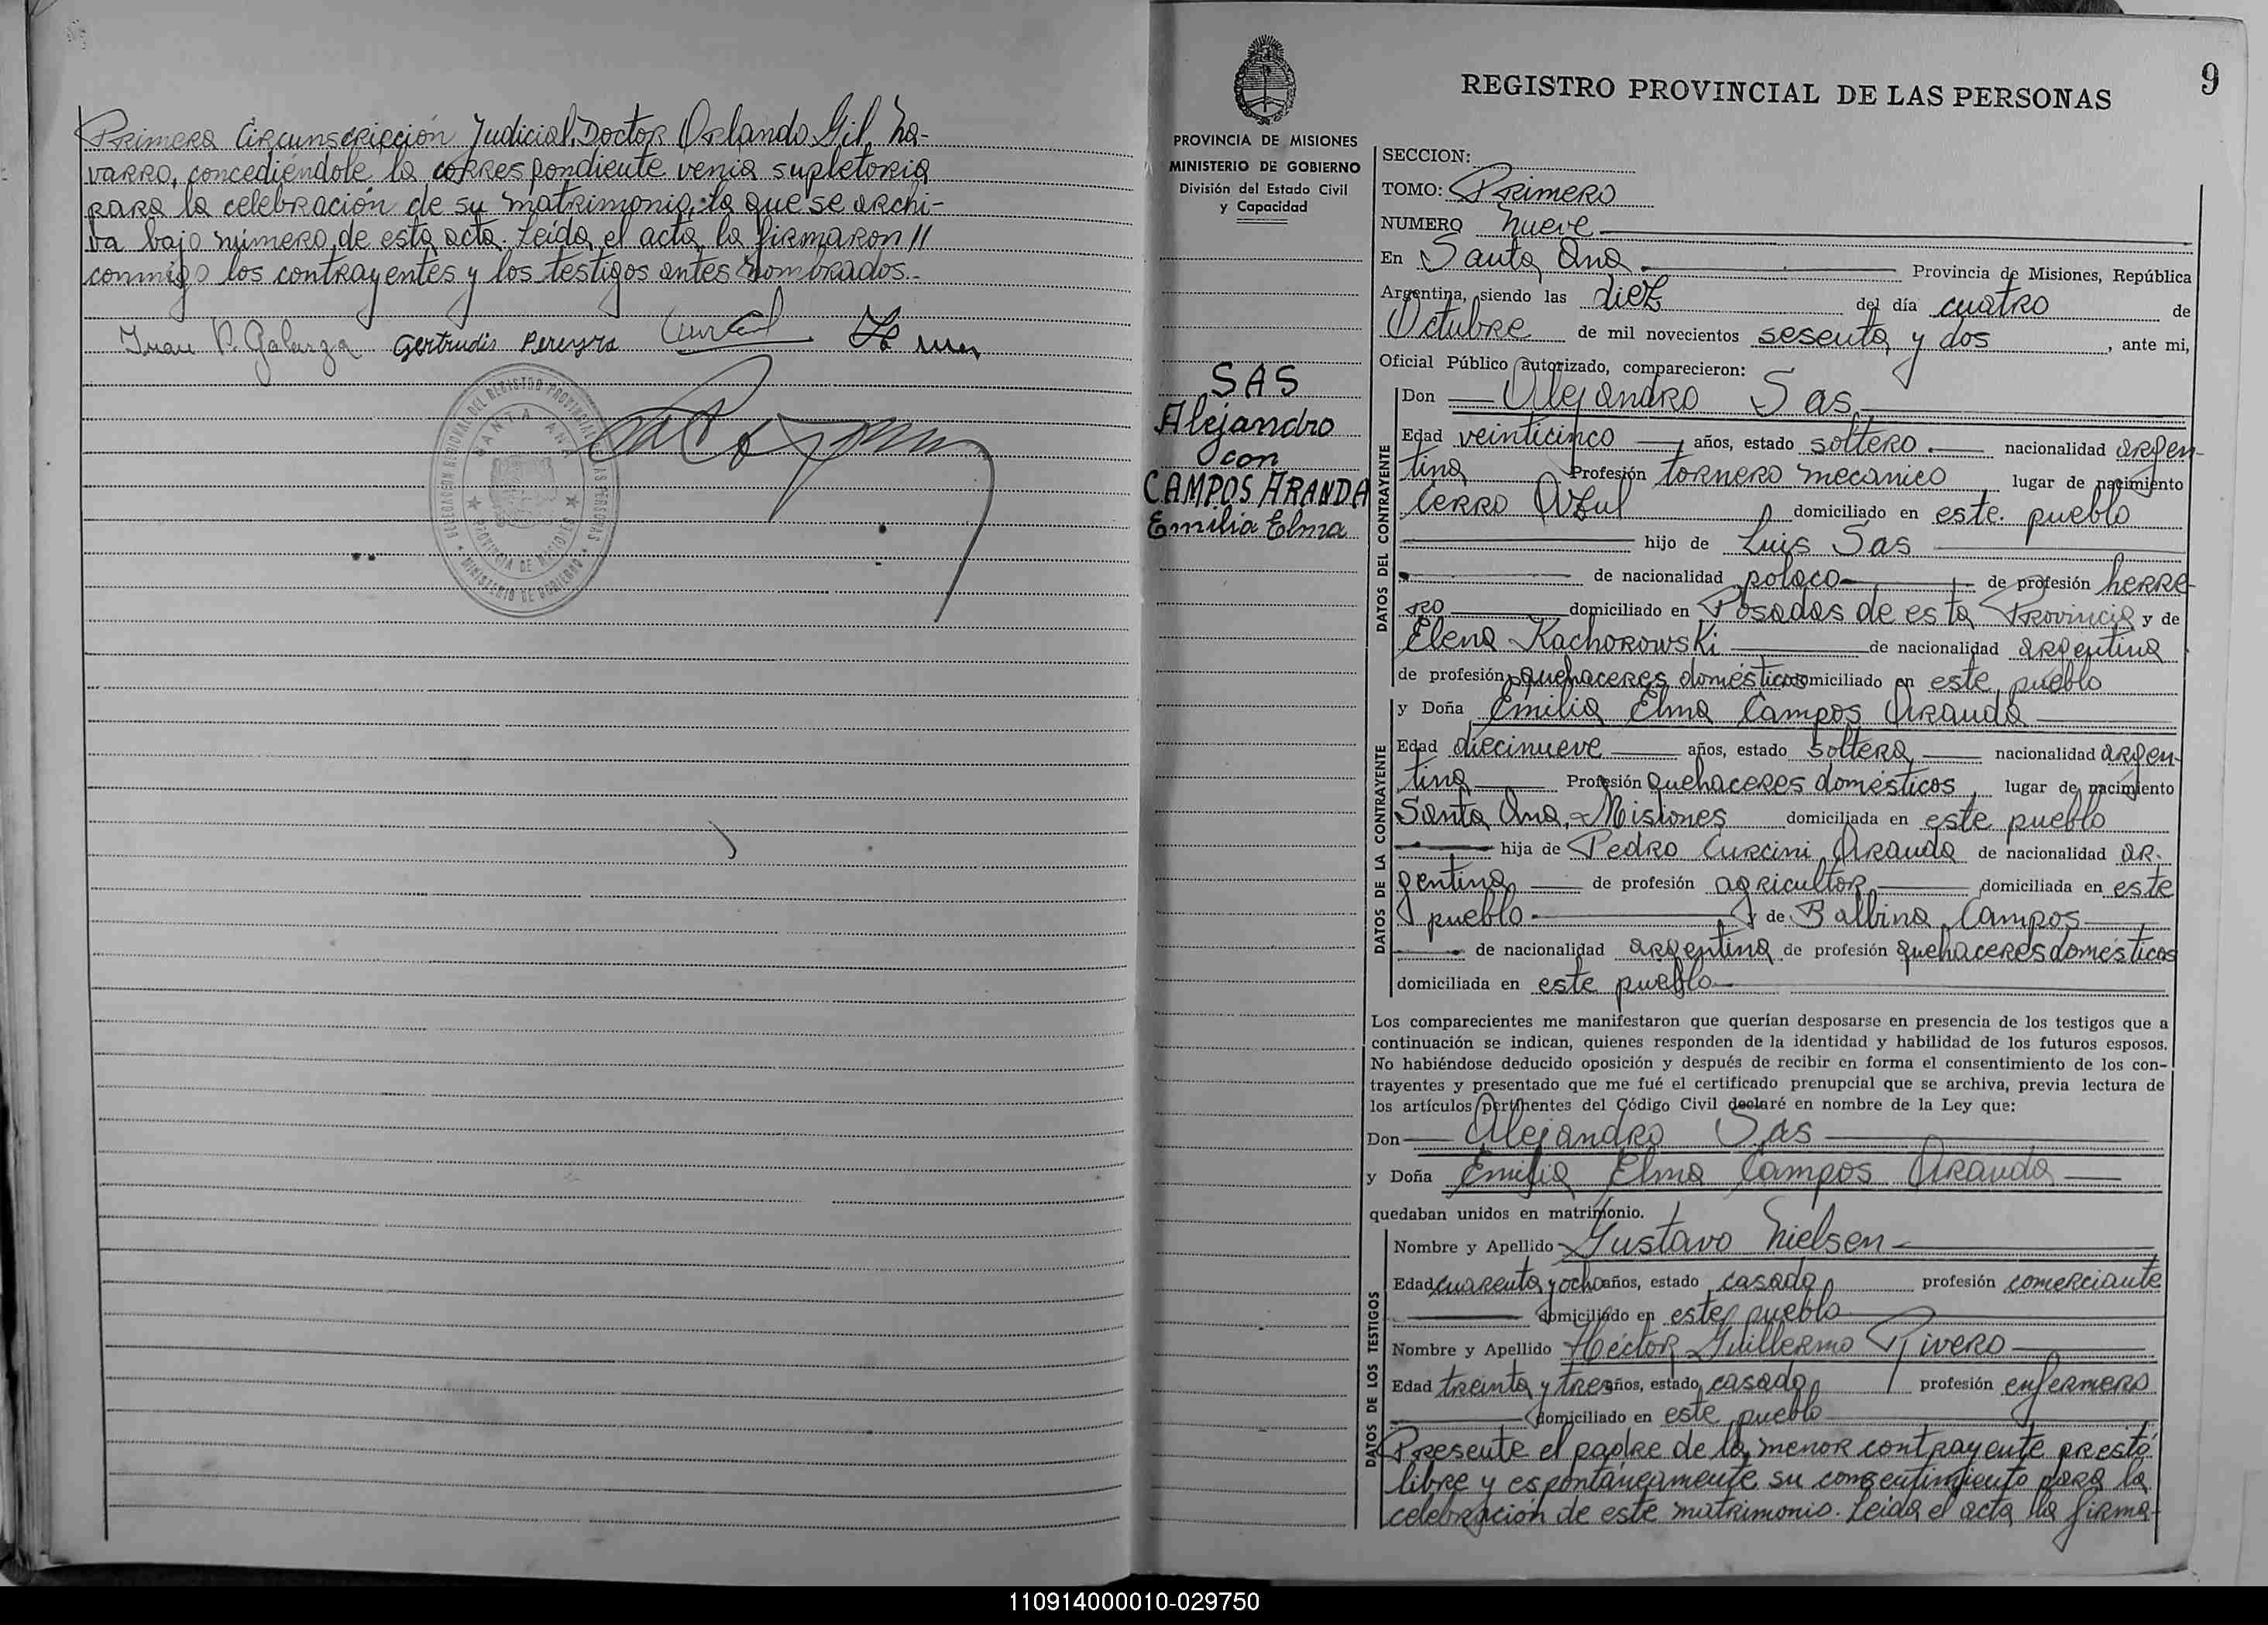 Primera Circunscripción Judicial, Doctor Orlando Gil Na-
varro, concediéndole la correspondiente venia supletoria
para la celebración de su matrimonio, la que se archi-
va bajo número de esta acta. Leída el acta, la firmaron //
conmigo los contrayentes y los testigos antes nombrados.-
Juan P. Galarza Gertrudis Pereyra
DELEGACION REGIONAL DEL REGISTRO PROVINCIAL DE LAS PERSONAS
SANTA ANA
PROVINCIA DE MISIONES
MINISTERIO DE GOBIERNO
9
PROVINCIA DE MISIONES
MINISTERIO DE GOBIERNO
División del Estado Civil
y Capacidad
SAS
Alejandro
con
CAMPOS ARANDA
Emilia Elma
REGISTRO PROVINCIAL DE LAS PERSONAS
SECCION:
TOMO: Primero
NUMERO Nueve
En Santa Ana Provincia de Misiones, República
Argentina, siendo las diez del día cuatro de
Octubre de mil novecientos sesenta y dos, ante mi,
Oficial Público autorizado, comparecieron:
DATOS DEL CONTRAYENTE
Don Alejandro Sas
Edad veinticinco años, estado soltero nacionalidad argen-
tina Profesión tornero mecánico, lugar de nacimiento
Cerro Azul domiciliado en este pueblo
hijo de Luis Sas
de nacionalidad polaco de profesión herre-
ro domiciliado en Posadas de esta Provincia y de
Elena Kachorowski de nacionalidad argentina
de profesión quehaceres domésticos domiciliado en este pueblo
DATOS DE LA CONTRAYENTE
y Doña Emilia Elma Campos Aranda
Edad diecinueve años, estado soltera nacionalidad argen-
tina Profesión quehaceres domésticos, lugar de nacimiento
Santa Ana, Misiones domiciliada en este pueblo
hija de Pedro Curcini Aranda de nacionalidad ar-
gentina de profesión agricultor domiciliada en este
pueblo y de Balbina Campos
de nacionalidad argentina de profesión quehaceres domésticos
domiciliada en este pueblo
Los comparecientes me manifestaron que querían desposarse en presencia de los testigos que a
continuación se indican, quienes responden de la identidad y habilidad de los futuros esposos.
No habiéndose deducido oposición y después de recibir en forma el consentimiento de los con-
trayentes y presentado que me fué el certificado prenupcial que se archiva, previa lectura de
los artículos pertinentes del Código Civil declaré en nombre de la Ley que:
Don Alejandro Sas
y Doña Emilia Elma Campos Aranda
quedaban unidos en matrimonio.
DATOS DE LOS TESTIGOS
Nombre y Apellido Gustavo Nielsen
Edad cuarenta y ocho años, estado casado profesión comerciante
domiciliado en este pueblo
Nombre y Apellido Héctor Guillermo Rivero
Edad treinta y tres años, estado casado profesión enfermero
domiciliado en este pueblo
Presente el padre de la menor contrayente prestó
libre y espontáneamente su consentimiento para la
celebración de este matrimonio. Leída el acta la firma-
110914000010-029750